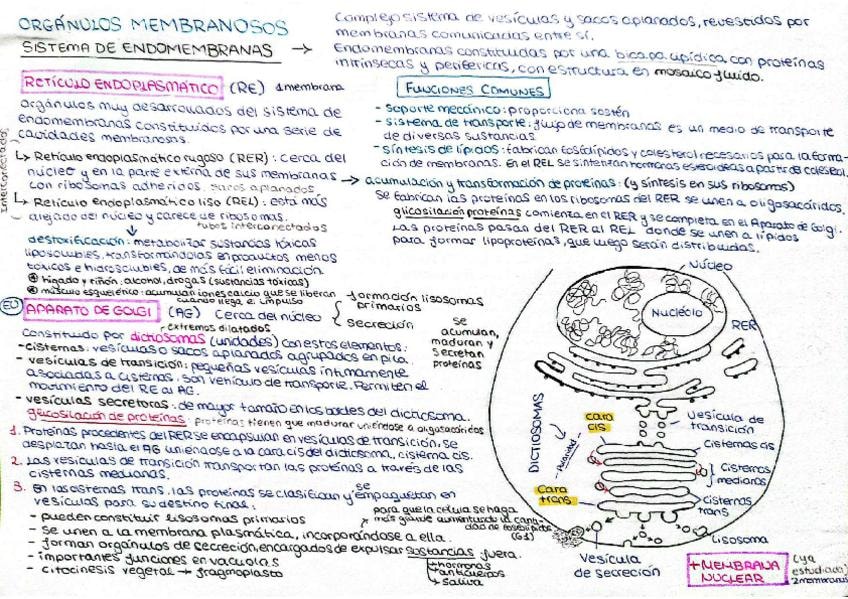 ORGÁNULOS MEMBRANOSOS
SISTEMA DE ENDOMEMBRANAS →
Complejo sistema de vesículas y sacos aplanados, revestidos por
membranas comunicadas entre sí.
Endomembranas constituidas por una bicapa lipídica con proteínas
intrínsecas y periféricas, con estructura en mosaico fluido.
RETÍCULO ENDOPLASMÁTICO (RE) 1 membrana
Orgánulos muy desarrollados del sistema de
endomembranas constituidos por una serie de
cavidades membranosas.
Interconectados
↳ Retículo endoplasmático rugoso (RER): cerca del
núcleo y en la parte externa de sus membranas
con ribosomas adheridos. sacos aplanados
↳ Retículo endoplasmático liso (REL): está más
alejado del núcleo y carece de ribosomas.
tubos interconectados
destoxificación: metabolizar sustancias tóxicas
liposolubles, transformándolas en productos menos
tóxicos e hidrosolubles, de más fácil eliminación
hígado y riñón: alcohol, drogas (sustancias tóxicas)
músculo esquelético: acumulan iones calcio que se liberan
cuando llega el impulso
FUNCIONES COMUNES
- soporte mecánico: proporciona sostén
- sistema de transporte: flujo de membranas es un medio de transporte
de diversas sustancias
- síntesis de lípidos: fabrican fosfolípidos y colesterol necesarios para la forma-
ción de membranas. en el REL se sintetizan hormonas esteroideas a partir de colesterol.
→ acumulación y transformación de proteínas: (y síntesis en sus ribosomas)
Se fabrican las proteínas en los ribosomas del RER se unen a oligosacáridos.
glicosilación proteínas comienza en el RER y se completa en el Aparato de Golgi.
Las proteínas pasan del RER al REL donde se unen a lípidos
para formar lipoproteínas, que luego serán distribuidas.
EU APARATO DE GOLGI (AG) Cerca del núcleo
formación lisosomas
primarios
secreción
se
acumulan,
maduran y
secretan
proteínas
extremos dilatados
Constituido por dictiosomas (unidades) con estos elementos:
- cisternas: vesículas o sacos aplanados agrupados en pila.
- vesículas de transición: pequeñas vesículas íntimamente
asociadas a cisternas, son vehículo de transporte. Permiten el
movimiento del RE al AG.
- vesículas secretoras: de mayor tamaño en los bordes del dictiosoma.
glicosilación de proteínas: proteínas tienen que madurar uniéndose a oligosacáridos
1. Proteínas procedentes del RER se encapsulan en vesículas de transición, se
desplazan hasta el AG uniéndose a la cara cis del dictiosoma, cisterna cis.
2. Las vesículas de transición transportan las proteínas a través de las
cisternas medianas.
3. En las cisternas trans, las proteínas se clasifican y se empaquetan en
vesículas para su destino final:
- pueden constituir lisosomas primarios
- se unen a la membrana plasmática, incorporándose a ella.
para que la célula se haga
más grande aumentando la canti-
dad de fosfolípidos
(G1)
- forman orgánulos de secreción, encargados de expulsar sustancias fuera.
hormonas
anticuerpos
saliva
- importantes funciones en vacuolas
- citocinesis vegetal → fragmoplasto
Núcleo
Nucléolo
RER
Vesícula de
transición
Cisternas cis
Cisternas
medianas
Cisternas
trans
Lisosoma
DICTIOSOMAS
Polaridad
cara
cis
Cara
trans
Vesícula
de secreción
+ MEMBRANA
NUCLEAR
(ya
estudiada)
2 membranas